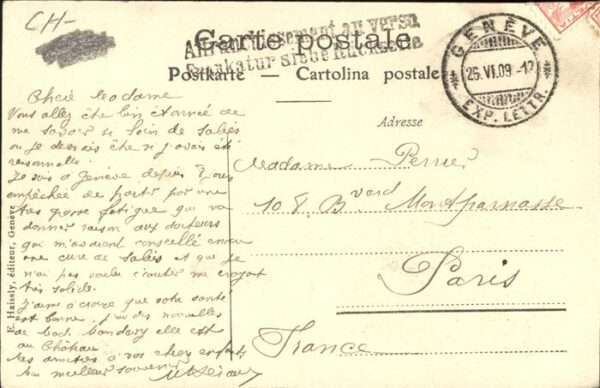 CH-
Carte postale
Affranchissement au verso
Frankatur siehe Rückseite
Postkarte — Cartolina postale
GENÈVE
26.VI.09.-12
EXP. LETTR.
Adresse
Chère Madame
Vous allez être bien étonnée de
me savoir si loin de Salies
où je devrais être si j'avais été
raisonnable.
Je suis à Genève depuis jours
empêchée de partir par une
très grosse fatigue qui va
donner raison aux docteurs
qui m'avaient conseillé encore
une cure de Salies et que je
n'ai pas voulu écouter me croyant
très solide.
J'aime à croire que votre santé
est bonne. J'ai des nouvelles
de elle est
au Château
amitiés à vos chers enfants
meilleur souvenir
Madame Perrier
108 Bvard Montparnasse
Paris
France
E. Haissly, éditeur, Genève